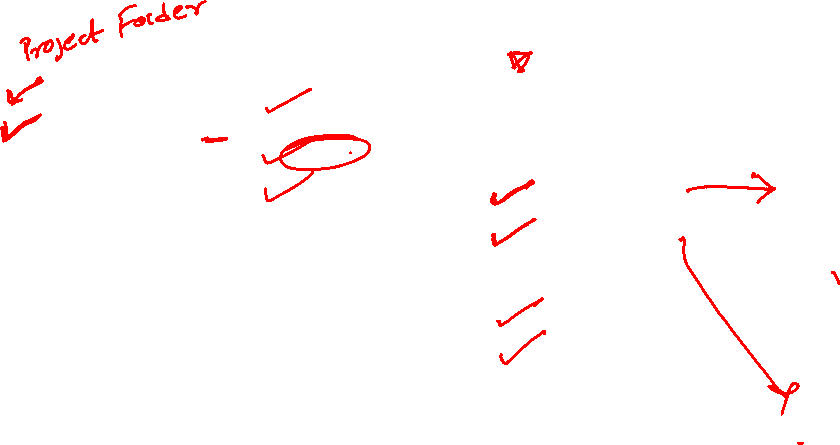 Project Folder